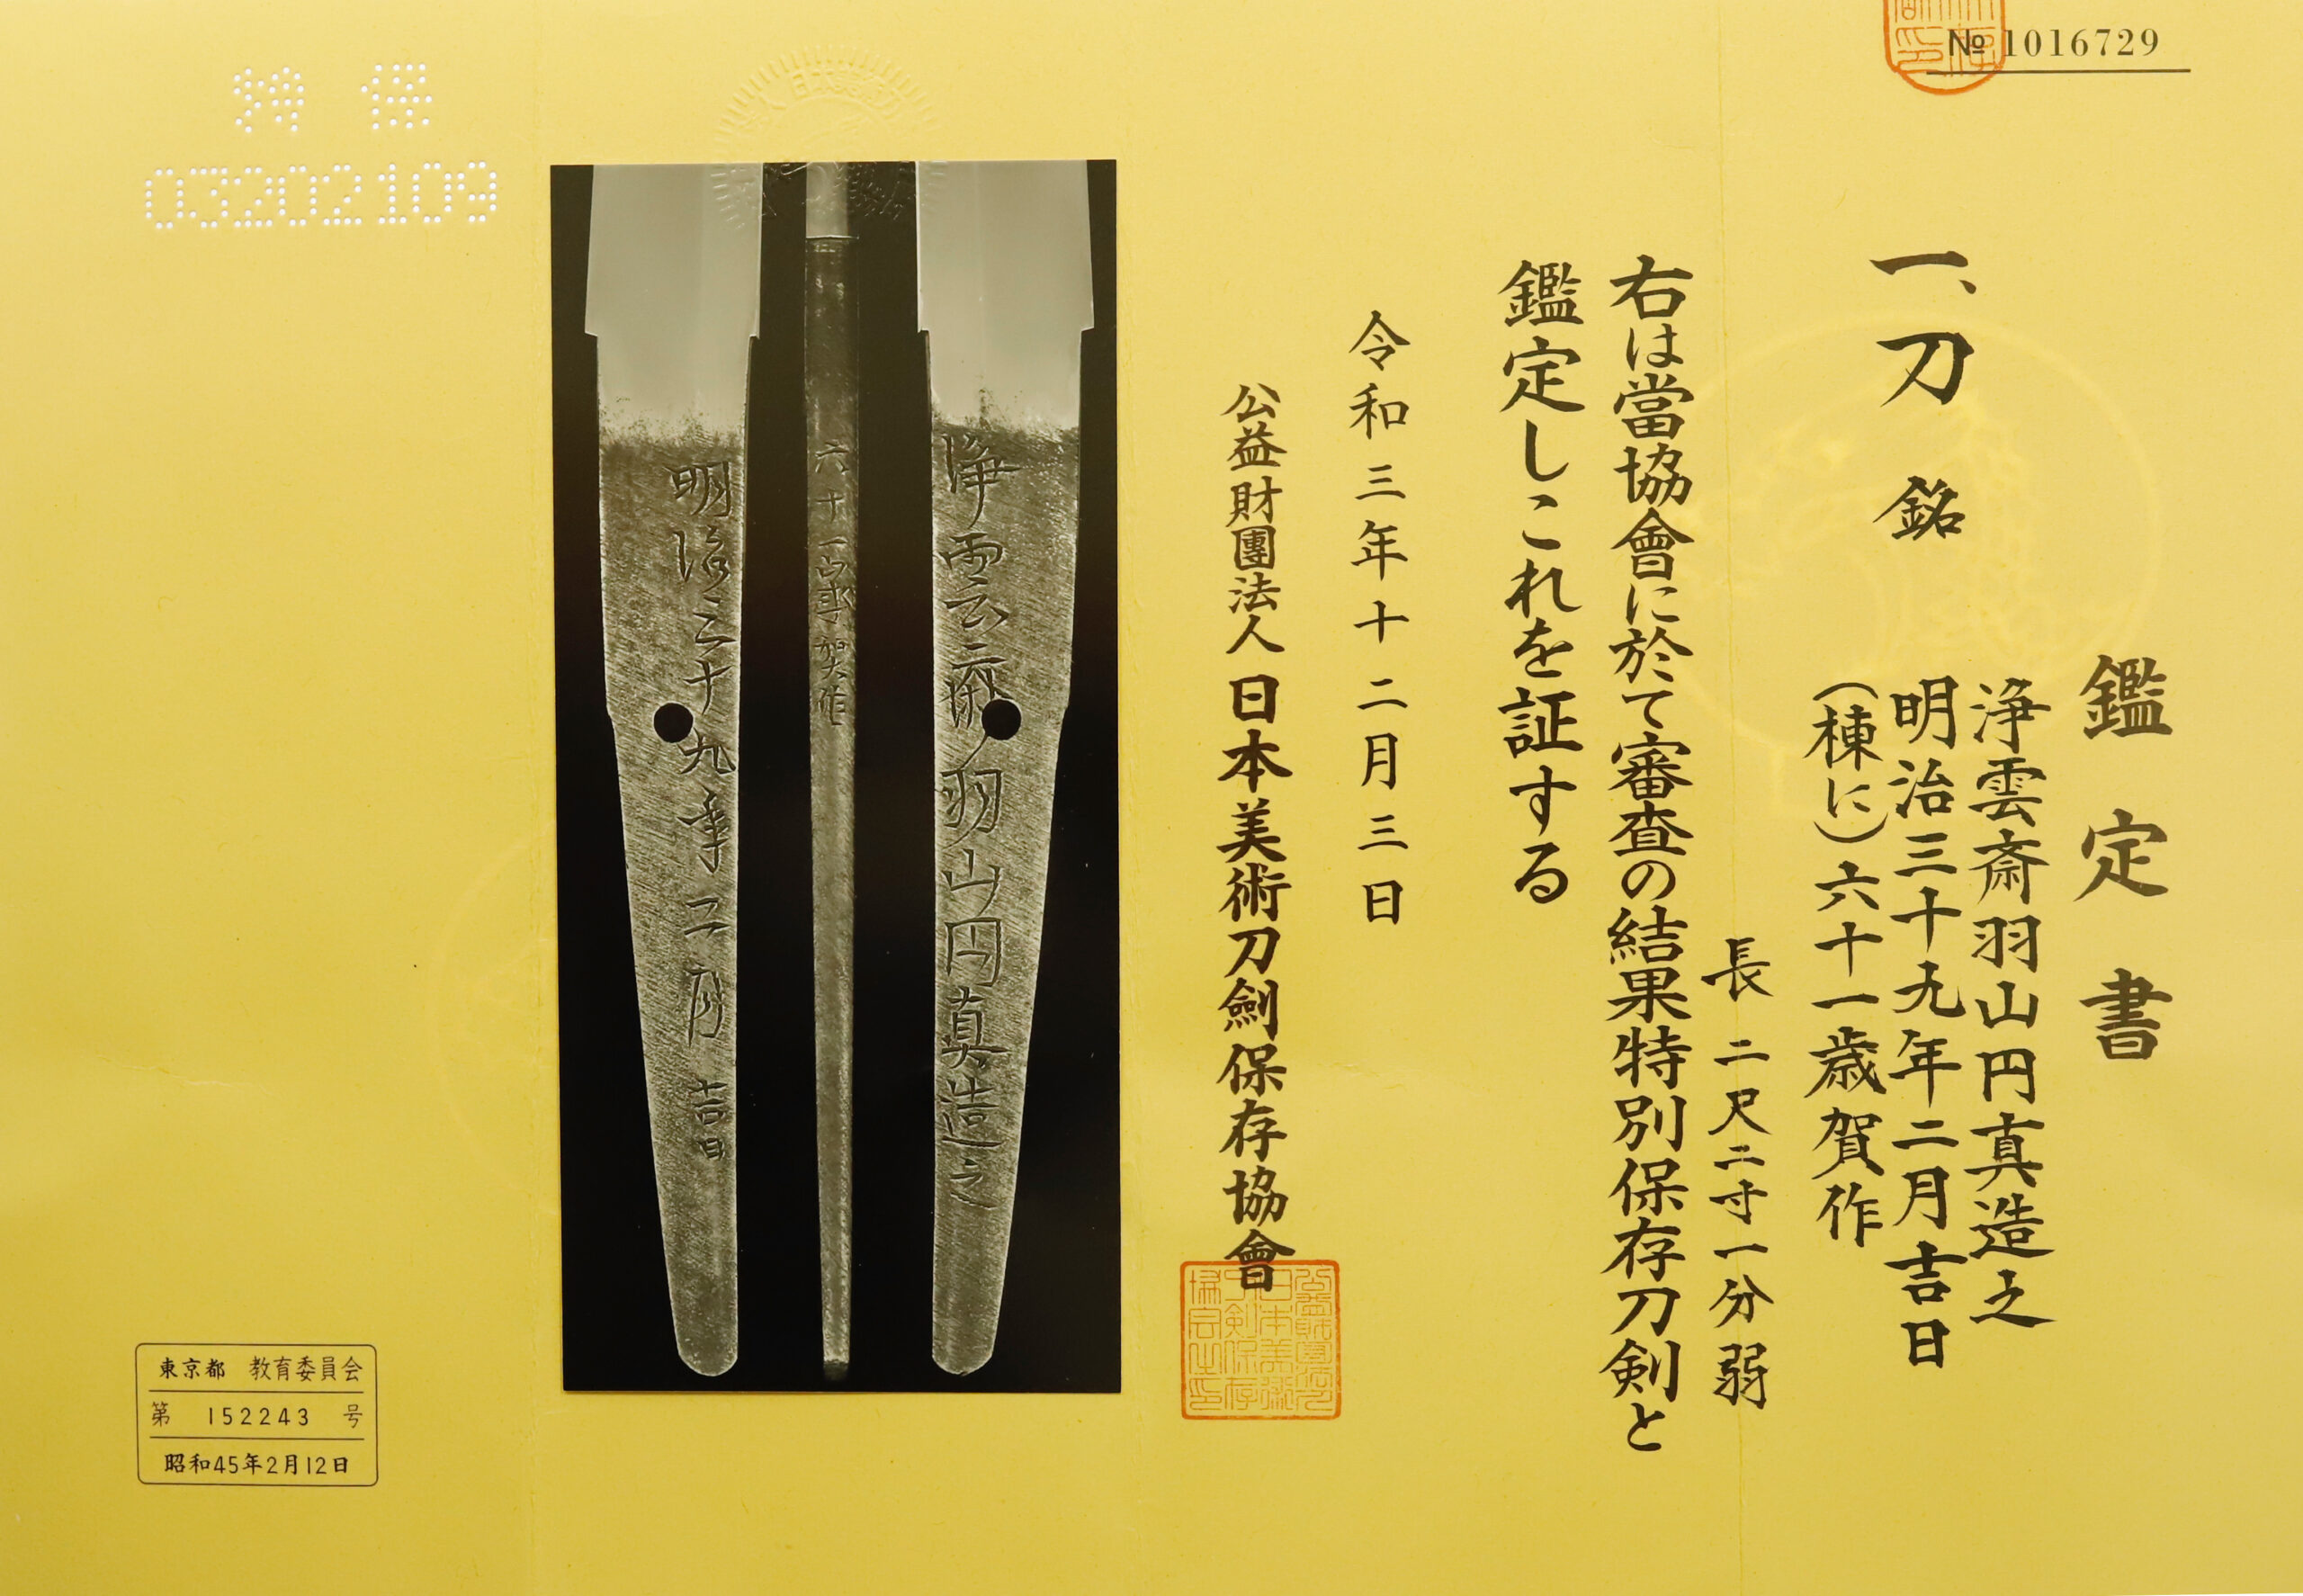 № 1016729
鑑定書
一、刀 銘
浄雲斎羽山円真造之
明治三十九年二月吉日
(棟に)六十一歳賀作
長 二尺二寸一分弱
右は當協會に於て審査の結果特別保存刀剣と
鑑定しこれを証する
令和三年十二月三日
公益財團法人日本美術刀劍保存協會
浄雲斎羽山円真造之
六十一歳賀作
明治三十九年二月吉日
特保
03202109
東京都 教育委員会
第 152243 号
昭和45年2月12日